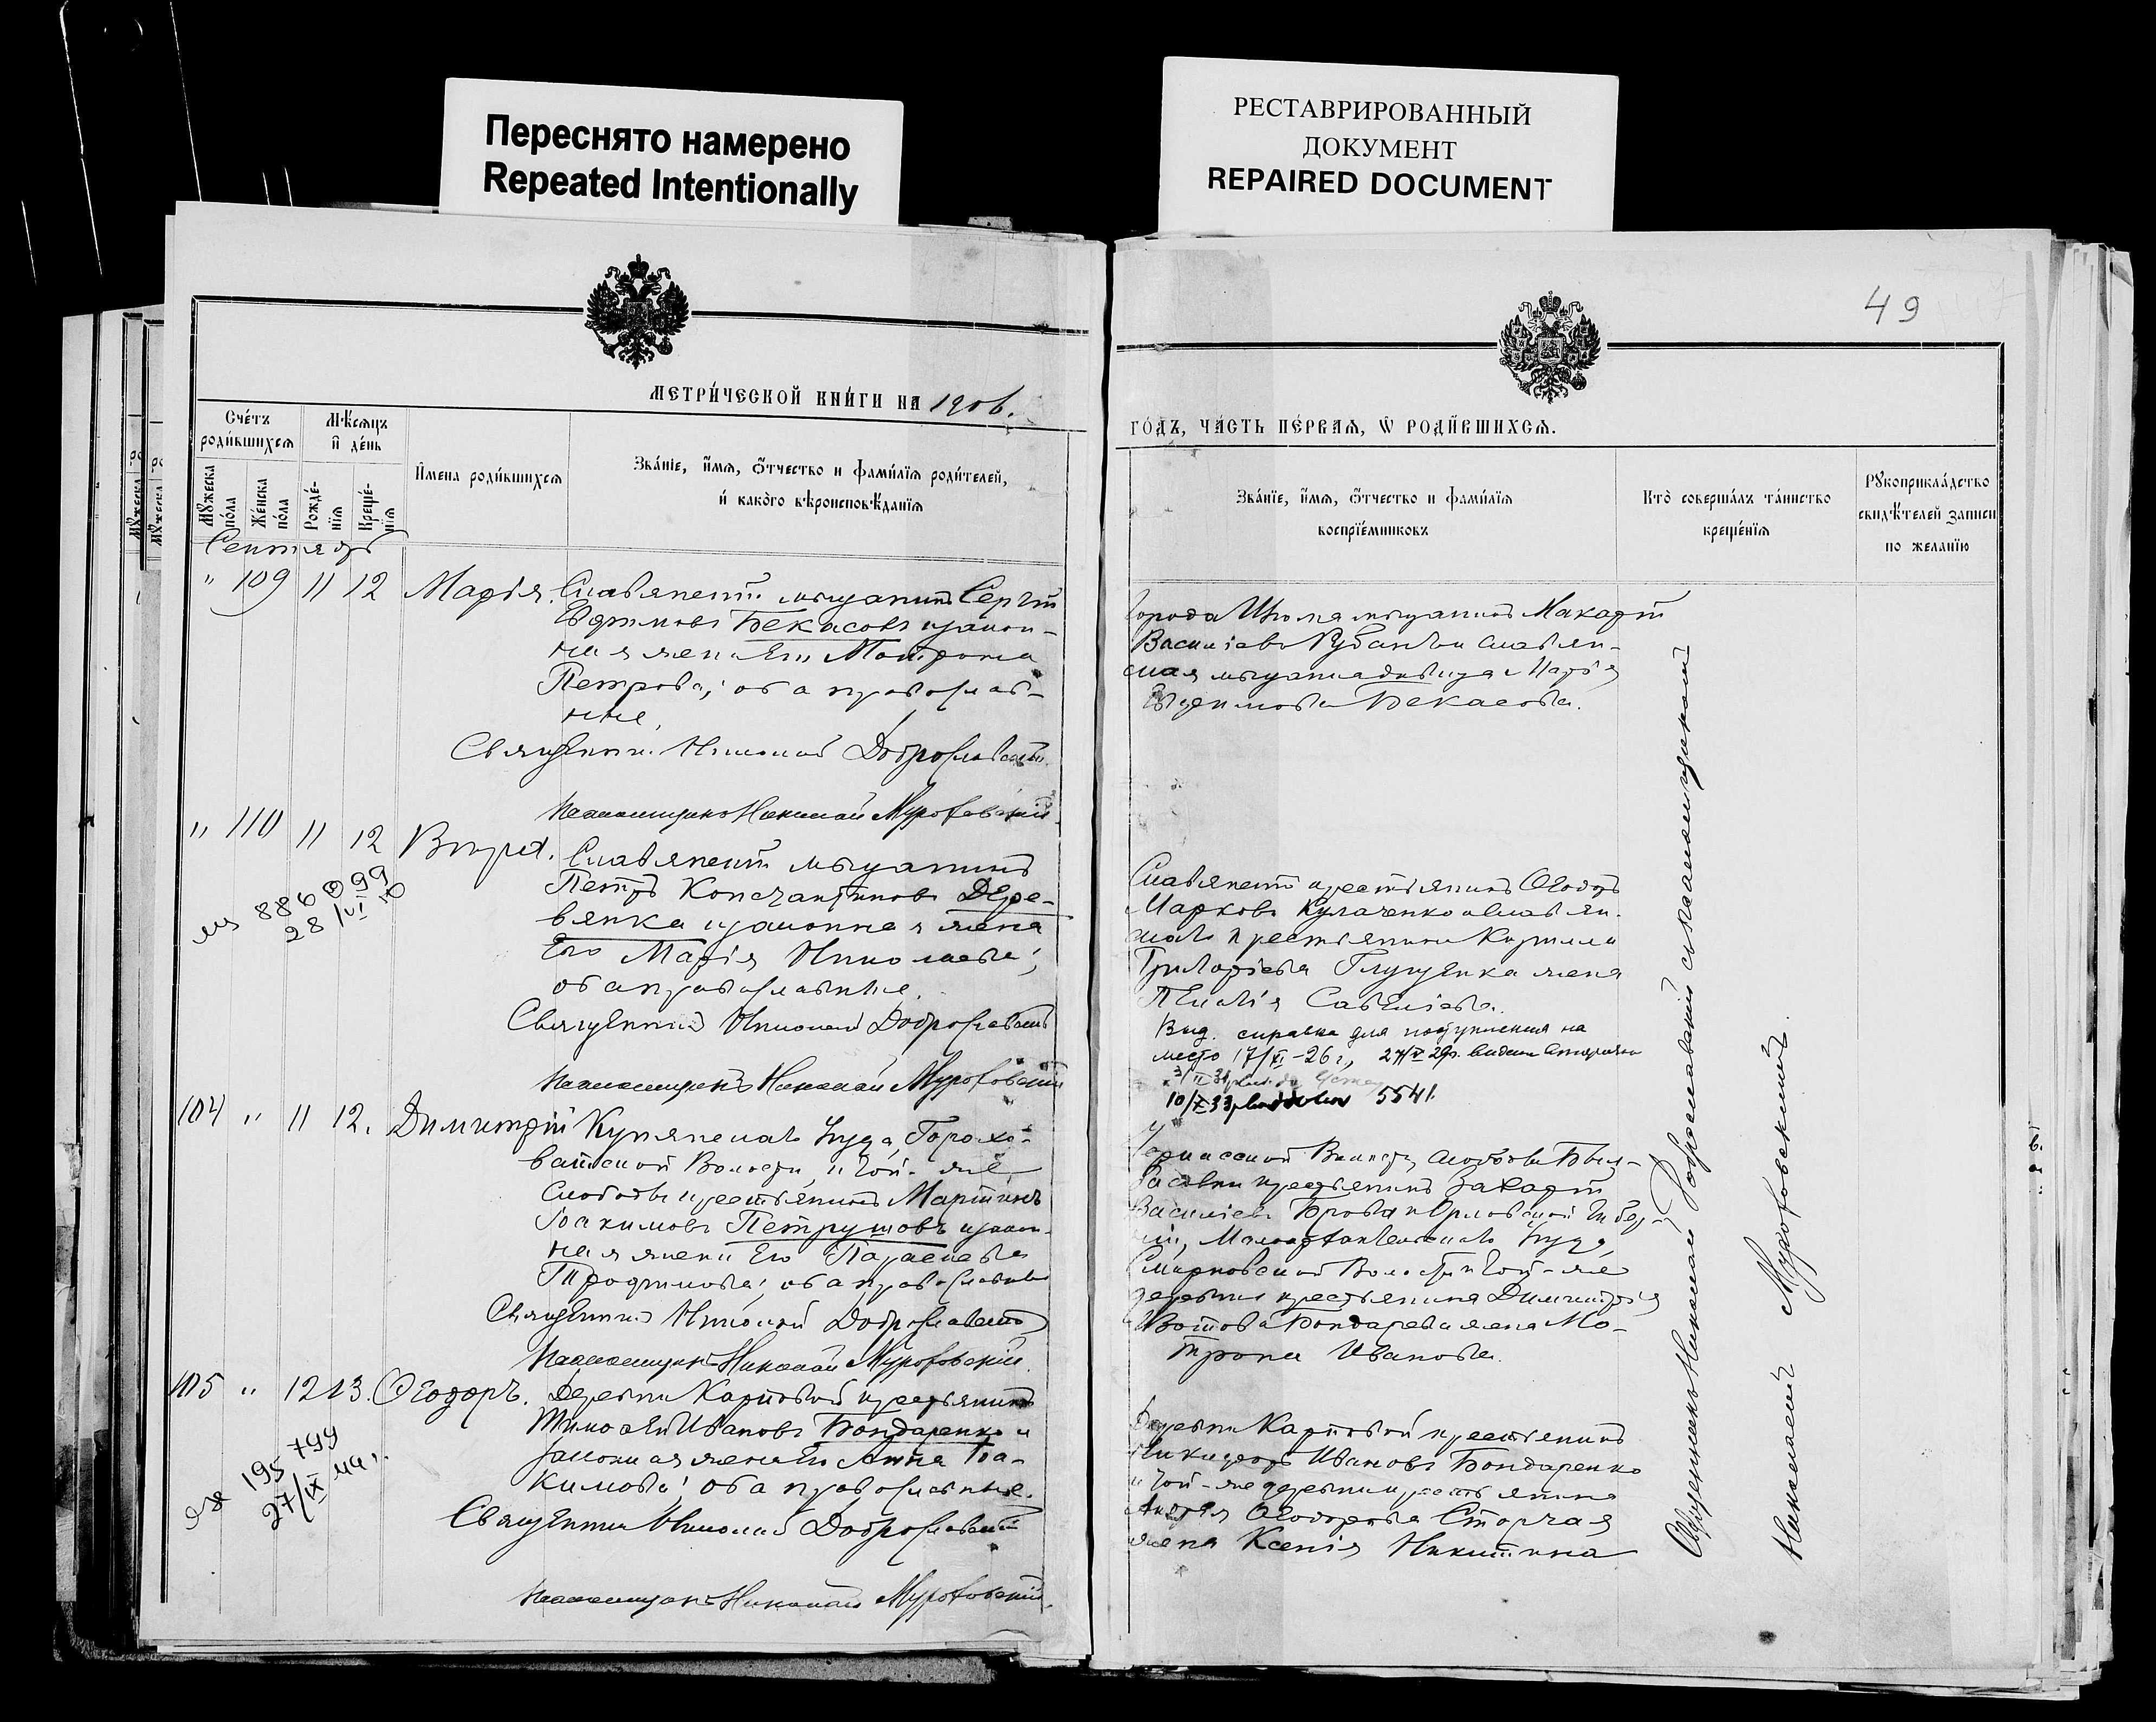 Переснято намерено
Repeated Intentionally
РЕСТАВРИРОВАННЫЙ
ДОКУМЕНТ
REPAIRED DOCUMENT
49
МЕТРИ́ЧЕСКОЙ КНИ́ГИ НА 1906.
ГО́ДЪ, ЧА́СТЬ ПЕ́РВАЯ, Ѡ РОДИ́ВШИХСЯ.
Сче́тъ
роди́вшихся
Мѣ́сяцъ
и де́нь
Мꙋ́жеска
по́ла
Же́нска
по́ла
Рожде́-
нія
Креще́-
нія
Имена роди́вшихся
Зва́ніе, и́мя, о́тчество и фами́лїя роди́телей,
и како́го вѣроисповѣ́данїя
Зва́нїе, и́мя, о́тчество и фами́лїя
воспрїе́мниковъ
Кто̀ соверша́лъ та́инство
креще́нїя
Рꙋкоприкла́дство
свидѣ́телей записи
по жела́нїю
Сентябрь
" 109 11 12 Марія. Славянскій мѣщанинъ Сергій
Ефимовъ Бекасовъ и закон-
ная жена Его Матрона
Петрова; оба православ-
ные.
Священникъ Николай Доброславскій
Псаломщикъ Николай Мурофовскій
Города Изюма мѣщанинъ Макарій
Василіевъ Рубанъ и славян-
ская мѣщанка дѣвица Марія
Бекасова.
" 110 11 12 Славянскій мѣщанинъ
Петръ Константиновъ Дере-
вянка и законная жена
Его Марія Николаева;
оба православные.
Священникъ Николай Доброславскій
Псаломщикъ Николай Мурофовскій
886099
28/VI
Славянскій крестьянинъ Ѳеодоръ
Марковъ Кулаченко и славян-
скаго крестьянина Кирилла
Григоріева Глущенка жена
Пелагія Савеліева.
Выд. справка для поступления на
место 17/XI-26 г., 24/V 29г. выдана
10/X 33 5541.
104 " 11 12. Димитрій Купянскаго уѣзда, Горохо-
ватской Волости, и той-же
Слободы крестьянинъ Мартинъ
Іоакимовъ Петрушовъ и закон-
ная жена Его Параскева
Трофимова; оба православные
Священникъ Николай Доброславскій
Псаломщикъ Николай Мурофовскій
Волости, слободы
крестьянинъ Захарій
Василіевъ Брова и Орловской Губер-
ніи, Малоархангельскаго уѣзда,
Волости и той-же
деревни крестьянина Димитрія
Бондарева жена Мо-
трона Иванова.
105 " 12 13. Ѳеодоръ. Деревни Карповой крестьянинъ
Тимоѳей Ивановъ Бондаренко и
законная жена Его Анна Іоа-
кимова; оба православные.
Священникъ Николай Доброславскій
Псаломщикъ Николай Мурофовскій
195799
27/IX 44 г.
Деревни Карповой крестьянинъ
Никифоръ Ивановъ Бондаренко
и той-же деревни крестьянина
Андрея Ѳеодорова Сторчая
жена Ксенія Никитина
Священникъ Николай Доброславскій съ псаломщикомъ
Николаемъ Мурофовскимъ.